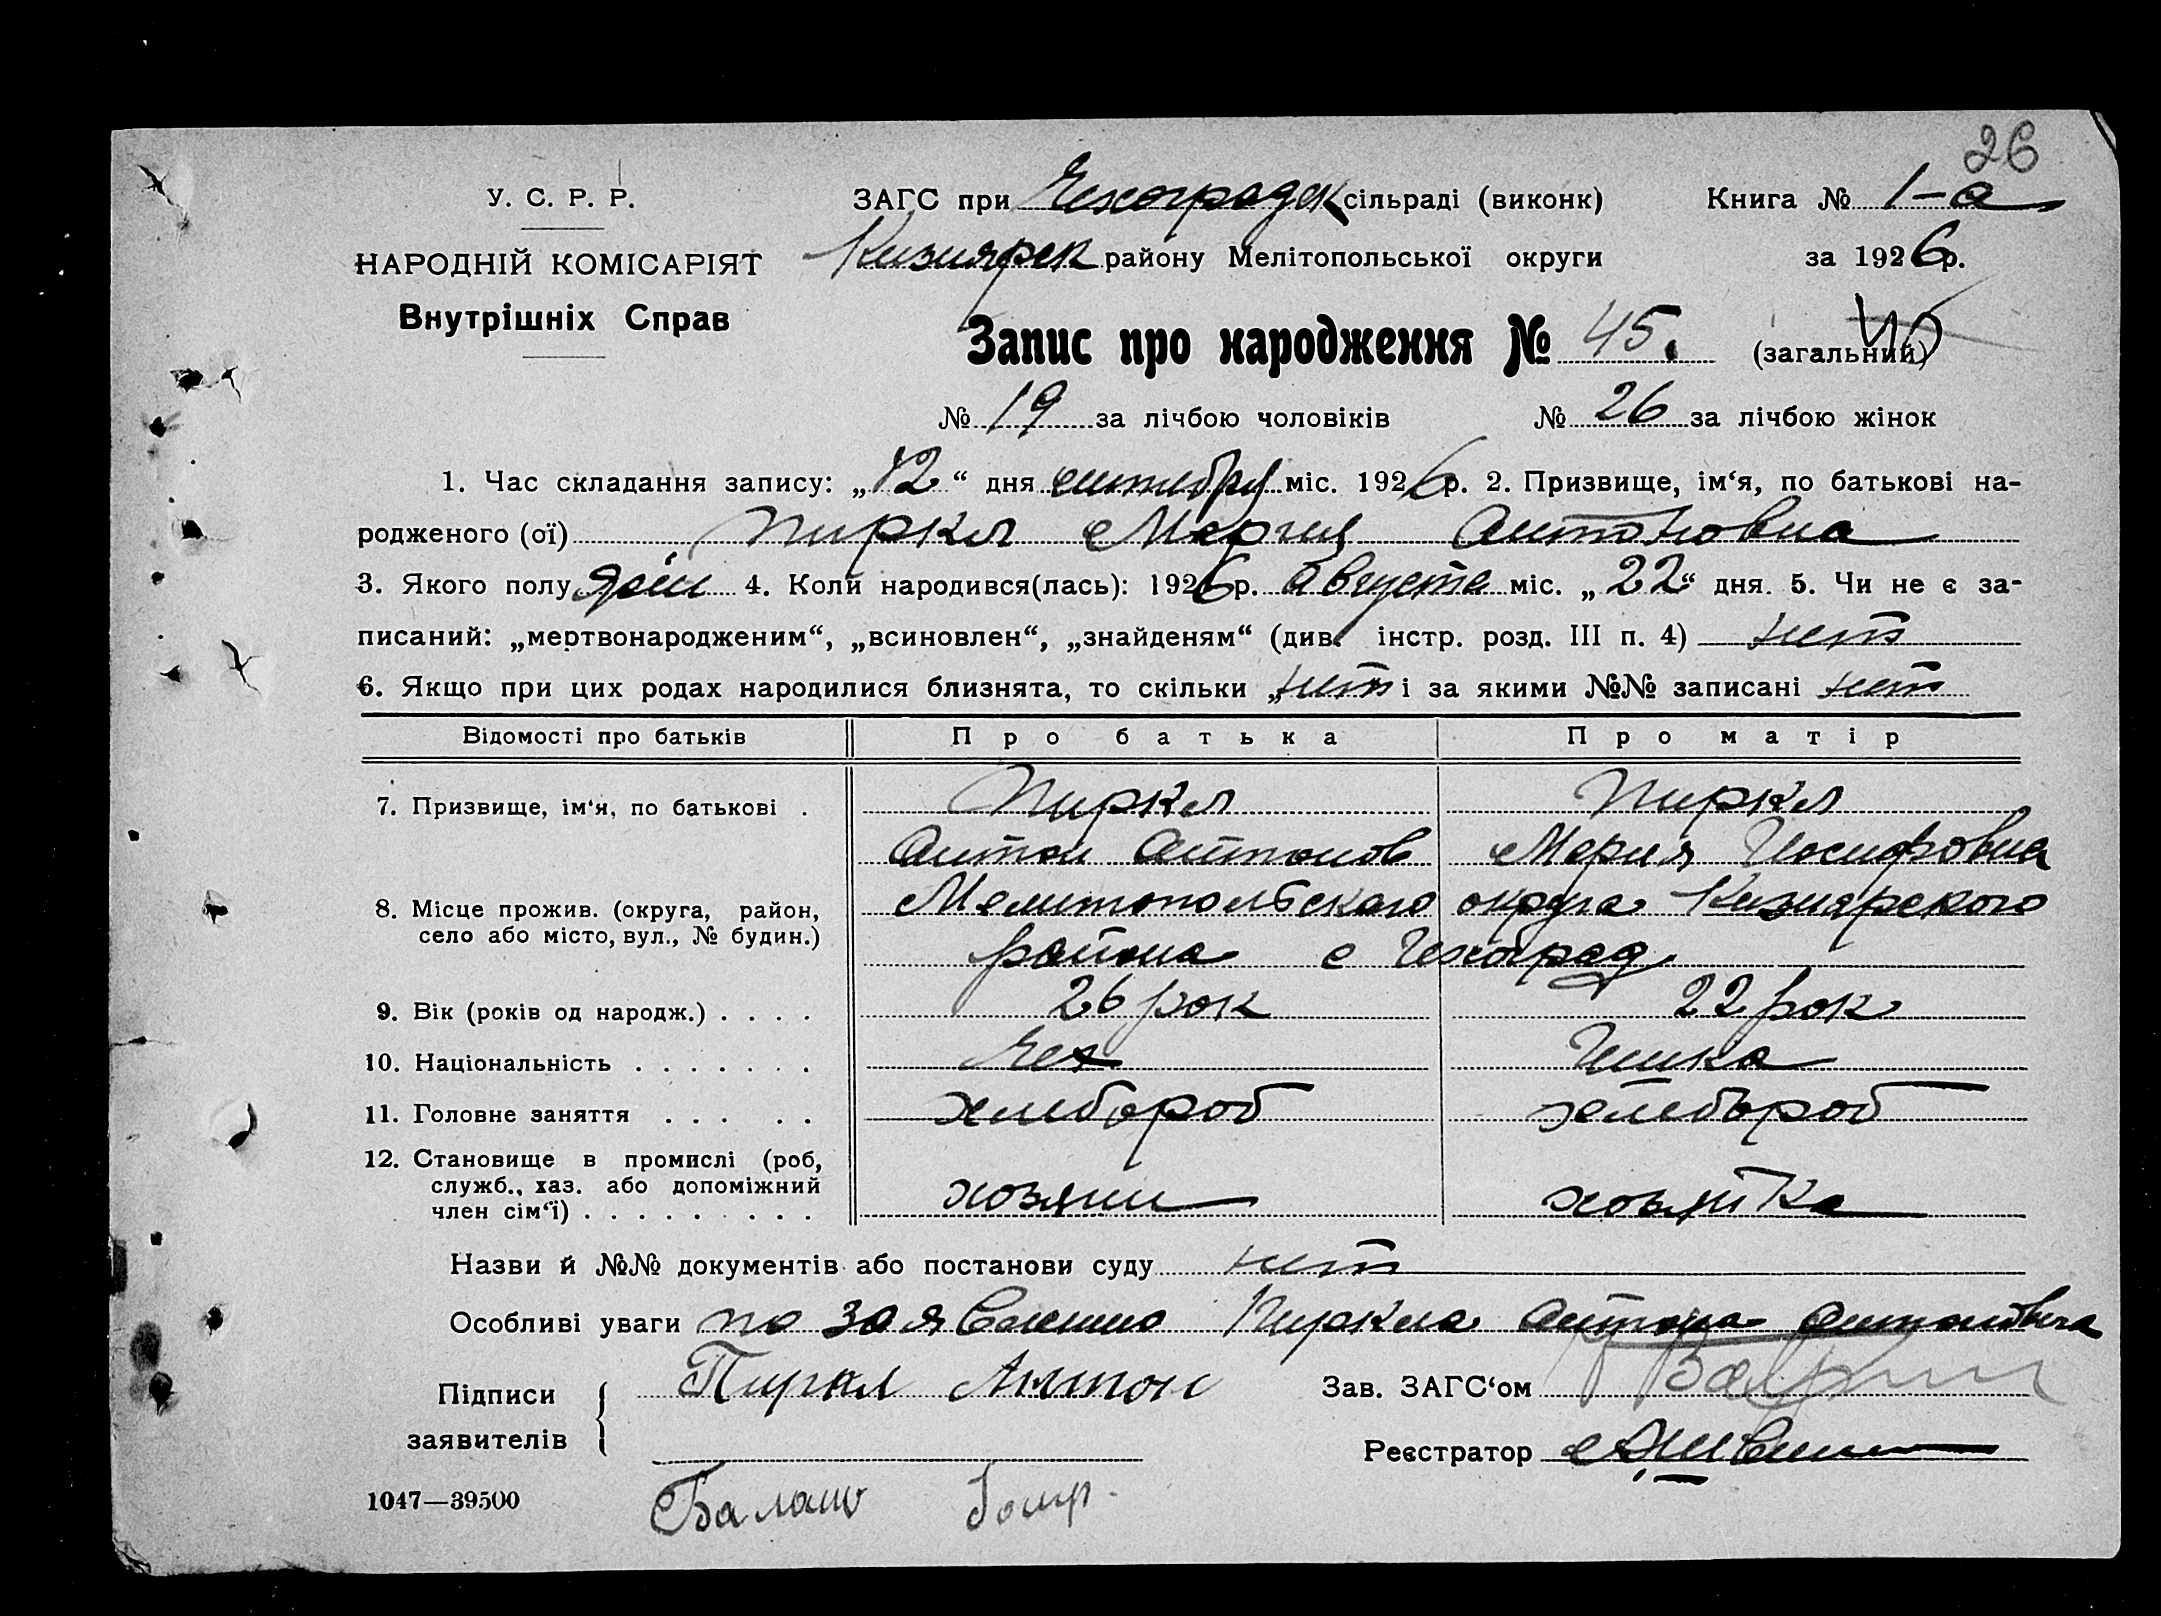 26
У. С. Р. Р.
ЗАГС при Чехоградск сільраді (виконк)
Книга № 1-а
НАРОДНІЙ КОМІСАРІЯТ
Кизиярск району Мелітопольської округи
за 1926 р.
Внутрішніх Справ
Запис про народження № 45. (загальний)
№ 19 за лічбою чоловіків № 26 за лічбою жінок
1. Час складання запису: „12“ дня сентября міс. 1926 р. 2. Призвище, ім‘я, по батькові на-
родженого (ої) Пиркл Мария Антоновна
3. Якого полу 4. Коли народився(лась): 1926 р. Августа міс. „22“ дня. 5. Чи не є за-
писаний: „мертвонародженим“, „всиновлен“, „знайденям“ (див. інстр. розд. III п. 4) нет
6. Якщо при цих родах народилися близнята, то скільки „нет і за якими №№ записані нет
Відомості про батьків Про батька Про матір
7. Призвище, ім‘я, по батькові . Пиркл Пиркл
Антон Антонов Мария Иосифовна
8. Місце прожив. (округа, район, Мелитопольского округа Кизиярского
село або місто, вул., № будин.) района с Чехоград
9. Вік (років од народж.) . . . . 26 рок 22 рок
10. Національність . . . . . . . Чех Чешка
11. Головне заняття . . . . . хлебороб хлебороб
12. Становище в промислі (роб,
служб., хаз. або допоміжний хозяин хозяйка
член сім‘ї) . . . . . . . . .
Назви й №№ документів або постанови суду нет
Особливі уваги по заявлению Пиркла Антона Антоновича
Підписи Пиркл Антон Зав. ЗАГС‘ом
заявителів Реєстратор
1047—39500